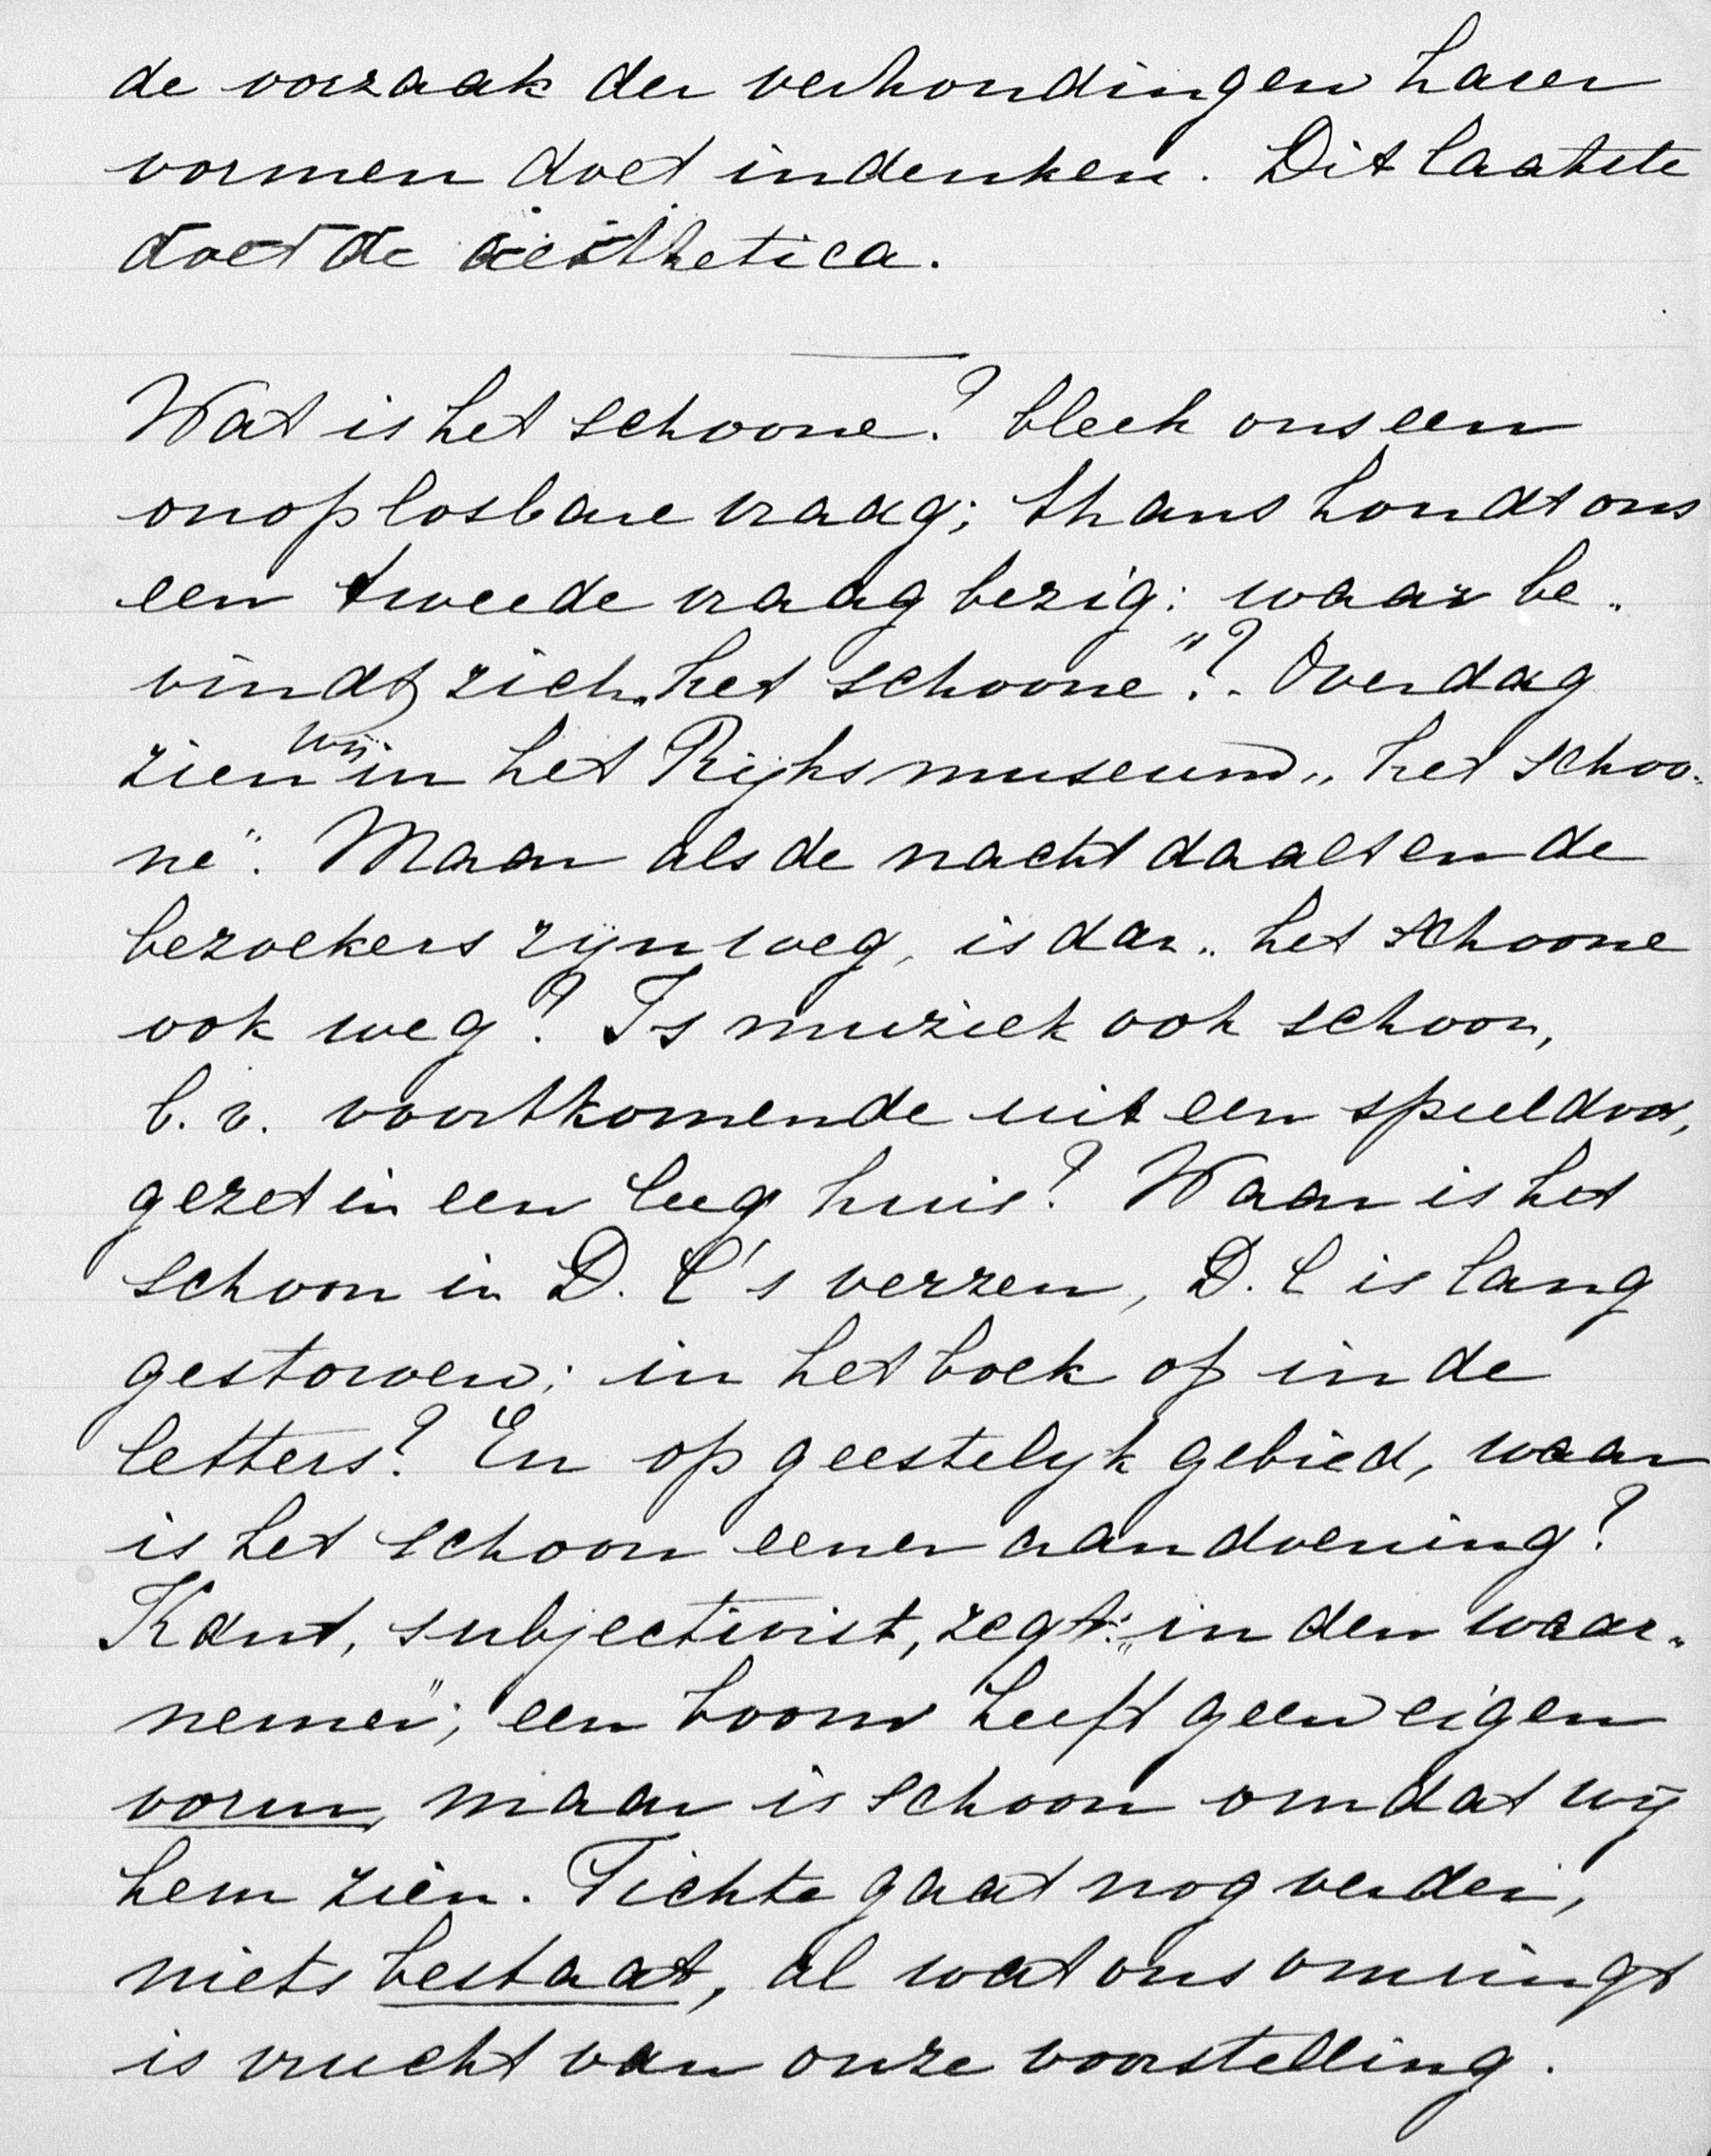 de oorzaak der verhoudingen harer
vormen doet indenken. Dit laatste
doet de aesthetica.
Wat is het schoone? bleek ons een
onoplosbare vraag; thans houdt ons
een tweede vraag bezig: waar be„
vindt zich „het schoone"? Overdag
zien wij in het Rijksmuseum „het schoo„
ne". Maar als de nacht daalt en de
bezoekers zijn weg, is dan „het schoone
ook weg? Is muziek ook schoon,
b.v. voortkomende uit een speeldoos,
gezet in een leeg huis? Waar is het
schoon in D. C's verzen, D. C is lang
gestorven; in het boek of in de
letters? En op geestelijk gebied, waar
is het schoon eener aandoening?
Kant, subjectivist, zegt: „in den waar„
nemer"; een boom heeft geen eigen
vorm, maar is schoon omdat wij
hem zien. Fichte gaat nog verder,
niets bestaat, al wat ons omringt
is vrucht van onze voorstelling.